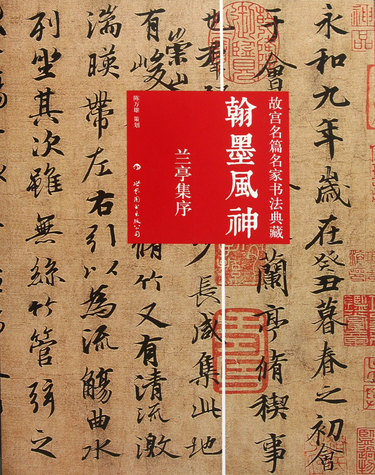 永和九年歲在癸丑暮春之初會
于會
蘭亭脩稧事
也
長咸集此地
崇山
有峻
脩竹又有清流激
湍暎帶左右引以為流觴曲水
列坐其次雖無絲竹管弦之
故宫名篇名家书法典藏
翰墨風神
兰亭集序
陈万雄 策划
世界图书出版公司
神品